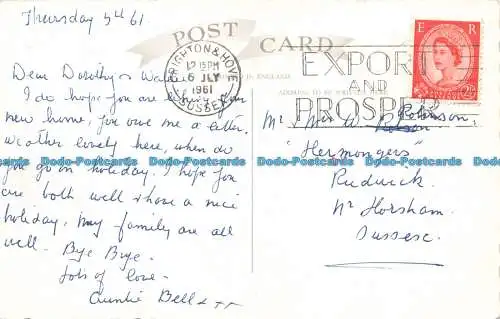 Thursday 5th 61
POST CARD
BRIGHTON & HOVE
12 15PM
6 JLY
1961
SUSSEX
EXPORT
AND
PROSPER
E R
2½D
IN ENGLAND
ADDRESS TO BE
Dear Dorothy &
I do hope you are
new home, you owe me a letter,
weather lovely here, when do
you go on holiday. I hope you
are both well & have a nice
holiday, my family are all
well. Bye Bye.
lots of love
Auntie Bell
Mr Mrs W. Robinson.
"Hermongers"
Rudwick.
Nr Horsham.
Sussex.
Dodo-Postcards Dodo-Postcards Dodo-Postcards Dodo-Postcards